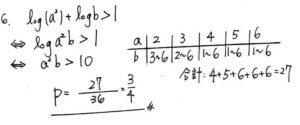 6. log(a²)+logb>1
⇔ loga²b>1
⇔ a²b>10
a | 2 | 3 | 4 | 5 | 6
b | 3~6 | 2~6 | 1~6 | 1~6 | 1~6
合計:4+5+6+6+6=27
P = 27/36 = 3/4